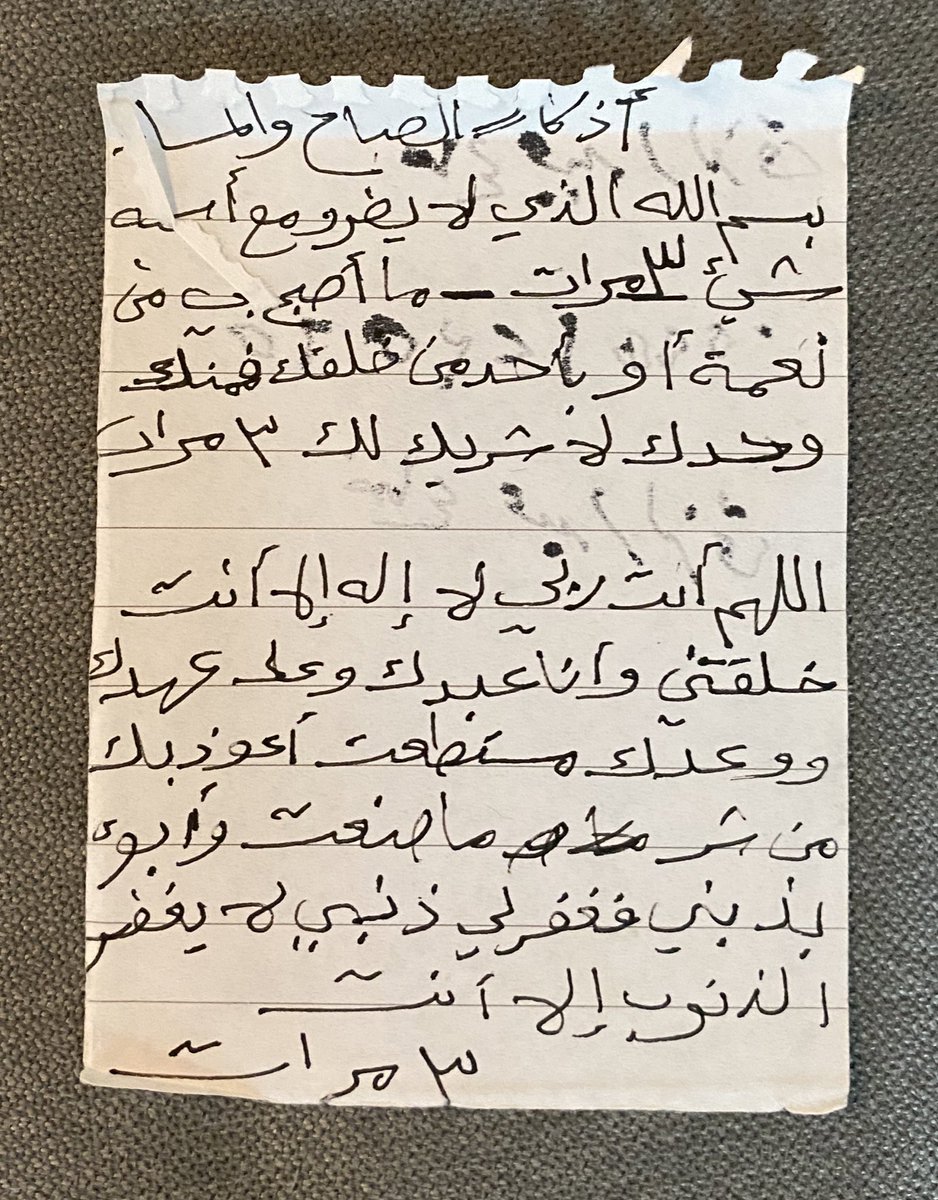 أذكار الصباح والمسا
بسم الله الذي لا يضرو مع أسمه
شيئ ٣ مرات - ما أصبح بي من
نعمة أو بأحد من خلقك فمنك
وحدك لا شريك لك ٣ مرات
اللهم أنت ربي لا إله إلا أنت
خلقتني وأنا عبدك وعلى عهدك
ووعدك مستطعت أعوذ بك
من شر ما صنعت وأبوء
بذنبي فغفر لي ذنبي لا يغفر
الذنوب إلا أنت
٣ مرات